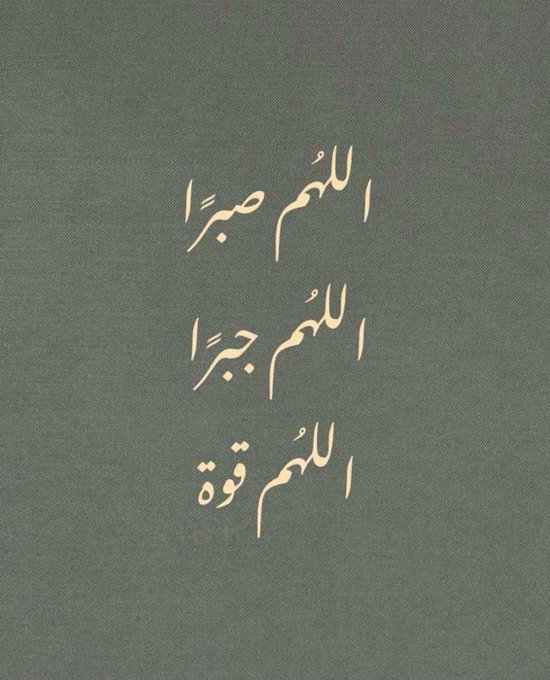 اللهُم صبرًا
اللهُم جبرًا
اللهُم قوة